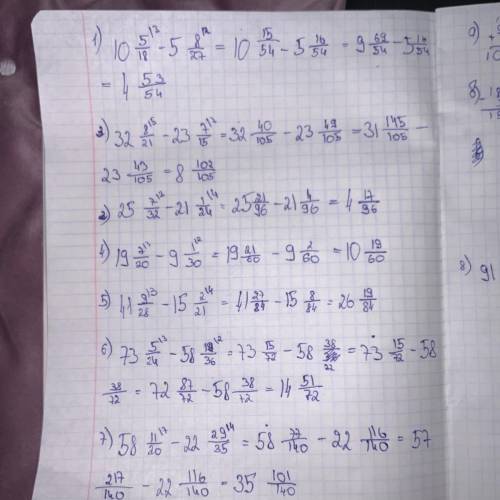 1) 10 5/18 - 5 8/27 = 10 15/54 - 5 16/54 = 9 69/54 - 5 16/54
= 4 53/54
3) 32 8/21 - 23 7/15 = 32 40/105 - 23 49/105 = 31 145/105 -
23 43/105 = 8 102/105
2) 25 7/32 - 21 1/24 = 25 21/96 - 21 4/96 = 4 17/96
4) 19 7/20 - 9 1/30 = 19 21/60 - 9 2/60 = 10 19/60
5) 41 9/28 - 15 2/21 = 41 27/84 - 15 8/84 = 26 19/84
6) 73 5/24 - 58 19/36 = 73 15/72 - 58 38/72 = 73 15/72 - 58
38/72 = 72 87/72 - 58 38/72 = 14 51/72
7) 58 11/20 - 22 29/35 = 58 77/140 - 22 116/140 = 57
217/140 - 22 116/140 = 35 101/140
8) 91